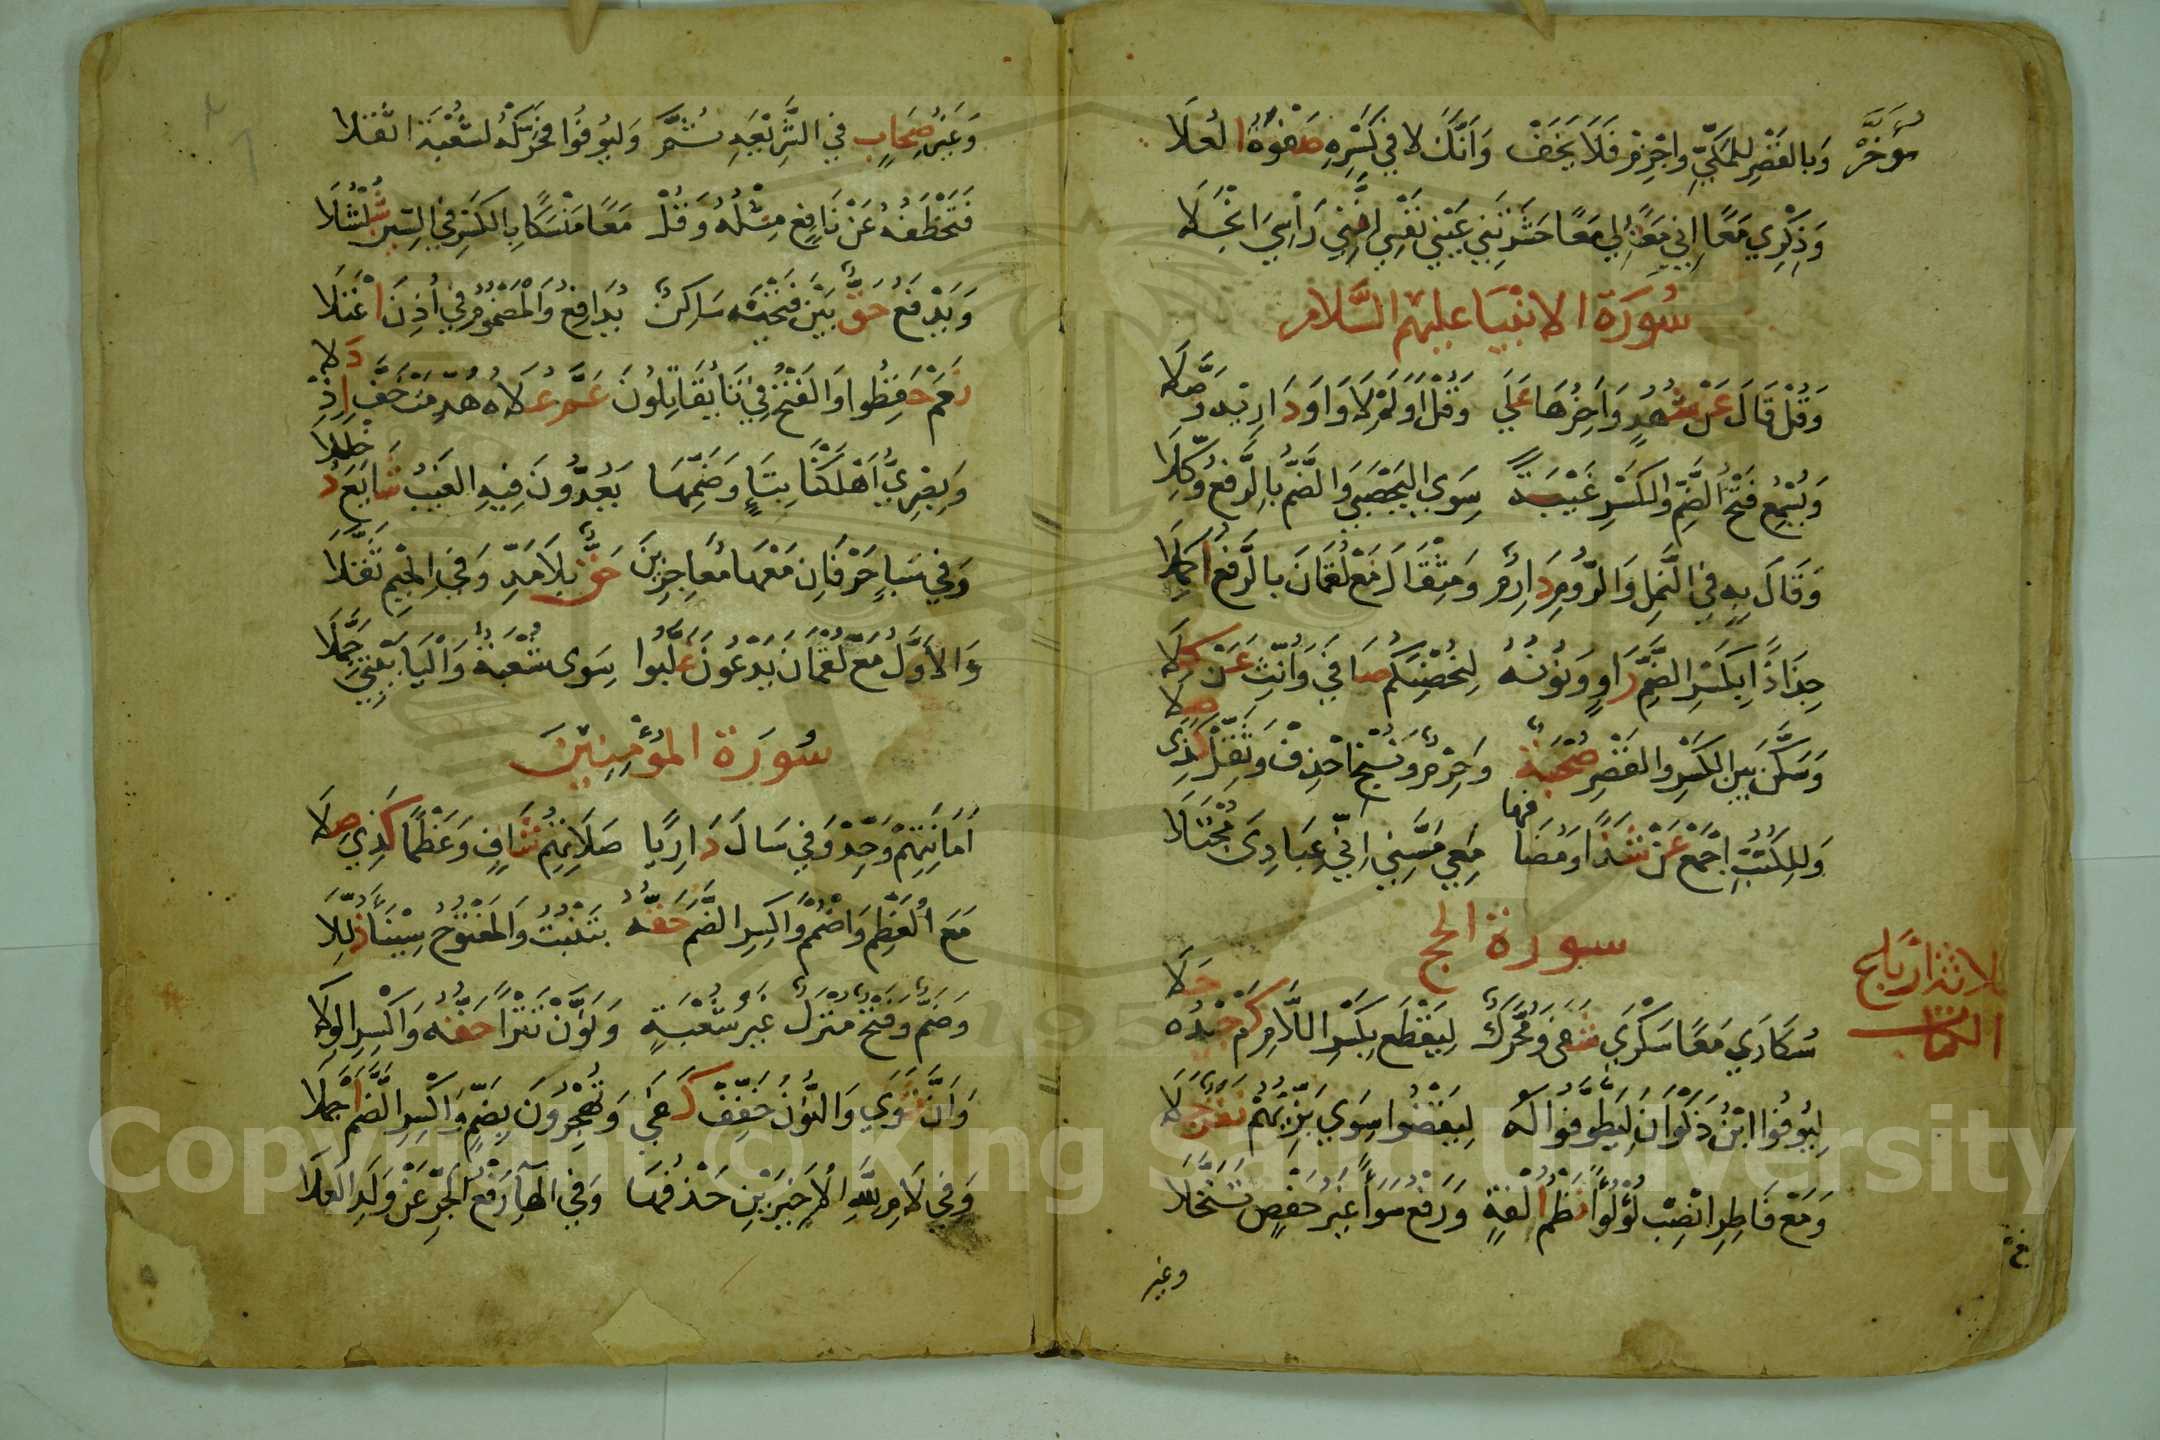 وَبِالقَصْرِ لِلمَكِّيِّ وَاجْزِمْ فَلَا يَخَفْ وَأَنَّكَ لَا فِي كَسْرِهِ صَفْوَةُ العُلَا
وَذِكْرِي مَعًا إِنِّي مَعًا لِي مَعًا حَشَرْتَنِي عَيْنِي نَفْسِي إِنَّنِي رَأْسِيَ انْجَلَا
سُورَة الانبيَا عليهم السَّلام
وَقُلْ قَالَ عَنْ شُهْدٍ وَآخِرُهَا عَلَى وَقُلْ أَوَلَمْ لَا وَاوَ دَارِيْهِ وَصَّلَا
وَيُسْمِعُ فَتْحُ الضَّمِّ وَالكَسْرِ غَيْبَةً سِوَى اليَحْصَبِي وَالضَّمُّ بِالرَّفْعِ وُكِّلَا
وَقَالَ بِهِ فِي النَّمْلِ وَالرُّومِ دَارِمٌ وَمِثْقَالُ مَعْ لُقْمَانَ بِالرَّفْعِ أُكْمِلَا
جِذَاذًا بِكَسْرِ الضَّمِّ رَاوٍ وَنُونُهُ لِنُحْصِنَكُمْ صَافَى وَأُنِّثَ عَنْ كِلَا
وَسَكَّنَ بَيْنَ الكَسْرِ وَالقَصْرِ صُحْبَةٌ وَحِرْمٌ وَنُنْجِي احْذِفْ وَثَقِّلْ كَذِي صِلَا
وَلِلكُتُبِ اجْمَعْ عَنْ شَذًا وَمُضَافُهَا مَعِي مَسَّنِي إِنِّي عِبَادِيَ مُجْتَلَا
سورة الحج
سُكَارَى مَعًا سَكْرَى شَفَى وَمُحَرَّكٌ لِيَقْطَعْ بِكَسْرِ اللَّامِ كَمْ جِيْدُهُ حَلَا
لِيُوفُوا ابْنُ ذَكْوَانٍ لِيَطَّوَّفُوا لَهُ لِيَقْضُوا سِوَى بَزِّيِّهِمْ نَفَرٌ جَلَا
وَمَعْ فَاطِرَ انْصِبْ لُؤْلُؤًا نَظْمُ أُلْفَةٍ وَرَفْعُ سَوَاءً غَيْرُ حَفْصٍ تَنَخَّلَا
وغير
وَغَيْرُ صِحَابٍ فِي الشَّرِيْعَةِ ثُمَّ وَلْيُوفُوا فَحَرِّكْهُ لِشُعْبَةَ اثْقَلَا
فَتَخْطَفُهُ عَنْ نَافِعٍ مِثْلُهُ وَقُلْ مَعًا مَنْسَكًا بِالكَسْرِ فِي السِّيْنِ شُلْشُلَا
وَيَدْفَعُ حَقٌّ بَيْنَ فَتْحَيْهِ سَاكِنٌ يُدَافِعُ وَالمَضْمُومُ فِي أُذِنَ اعْتَلَا
نَعَمْ حَفِظُوا وَالفَتْحُ فِي تَا يُقَاتَلُونَ عَمَّ عُلَاهُ هُدِّمَتْ خَفَّ إِذْ دَلَا
وَبَصْرِيٌّ أَهْلَكْنَا بِتَاءٍ وَضَمِّهَا يَعُدُّونَ فِيهِ الغَيْبُ شَايَعَ دُخْلُلَا
وَفِي سَبَإٍ حَرْفَانِ مَعْهَا مُعَاجِزِينَ حَقٌّ بِلَا مَدٍّ وَفِي الجِيْمِ ثَقَّلَا
وَالأَوَّلُ مَعْ لُقْمَانَ يَدْعُونَ غَلَّبُوا سِوَى شُعْبَةٍ وَاليَا بَيْتِيَ جَمَّلَا
سُورَة المؤمِنِيْنَ
أَمَانَتِهِمْ وَحِّدْ وَفِي سَالَ دَارِيًا صَلَاتِهِمُ شَافٍ وَعَظْمًا كَذِي صِلَا
مَعَ العَظْمِ وَاضْمُمْ وَاكْسِرِ الضَّمَّ حَقُّهُ بِتَنْبُتُ وَالمَفْتُوحُ سِيْنَاءَ ذُلِّلَا
وَضَمٌّ وَفَتْحٌ مَنْزَلًا غَيْرُ شُعْبَةٍ وَنَوَّنَ تَتْرًا حَقُّهُ وَاكْسِرِ الوِلَا
وَأَنَّ ثَوَى وَالنُّونُ خَفِّفْ كَفَى وَتَهْجُرُونَ بِضَمٍّ وَاكْسِرِ الضَّمَّ أَجْمَلَا
وَفِي لَامِ لِلَّهِ الأَخِيرَيْنِ حَذْفُهَا وَفِي الهَاءِ رَفْعُ الجَرِّ عَنْ وَلَدِ العَلَا